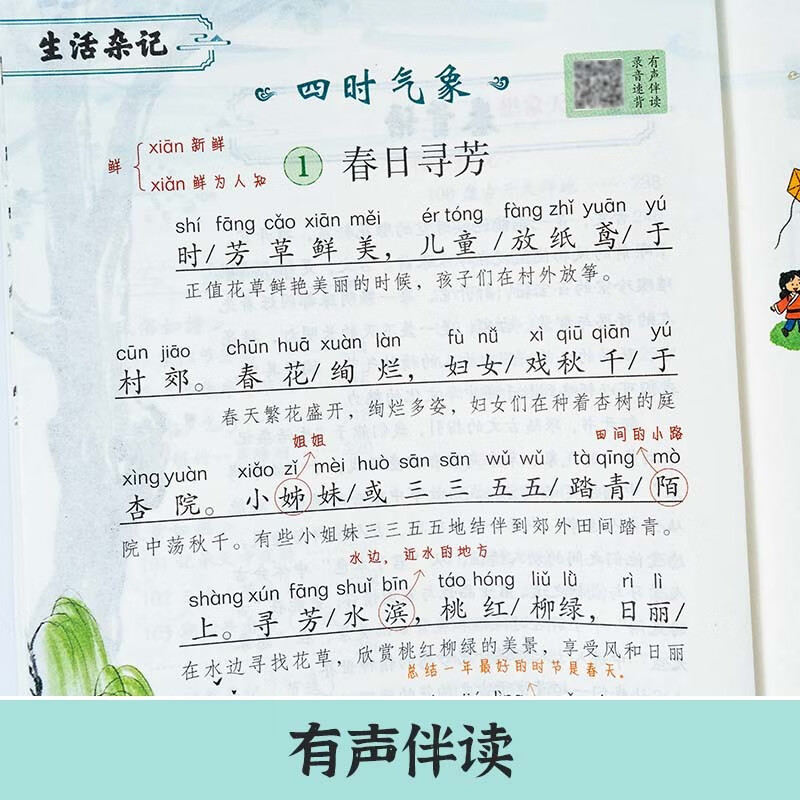 生活杂记
四时气象
有声伴读
录音速背
鲜
xiān 新鲜
xiǎn 鲜为人知
1 春日寻芳
shí fāng cǎo xiān měi ér tóng fàng zhǐ yuān yú
时/芳草鲜美，儿童/放纸鸢/于
正值花草鲜艳美丽的时候，孩子们在村外放筝。
cūn jiāo chūn huā xuàn làn fù nǚ xì qiū qiān yú
村郊。春花/绚烂，妇女/戏秋千/于
春天繁花盛开，绚烂多姿，妇女们在种着杏树的庭
姐姐
田间的小路
xìng yuàn xiǎo zǐ mèi huò sān sān wǔ wǔ tà qīng mò
杏院。小姊妹/或三三五五/踏青/陌
院中荡秋千。有些小姐妹三三五五地结伴到郊外田间踏青。
水边，近水的地方
shàng xún fāng shuǐ bīn táo hóng liǔ lǜ rì lì
上。寻芳/水滨，桃红/柳绿，日丽/
在水边寻找花草，欣赏桃红柳绿的美景，享受风和日丽
总结一年最好的时节是春天。
有声伴读